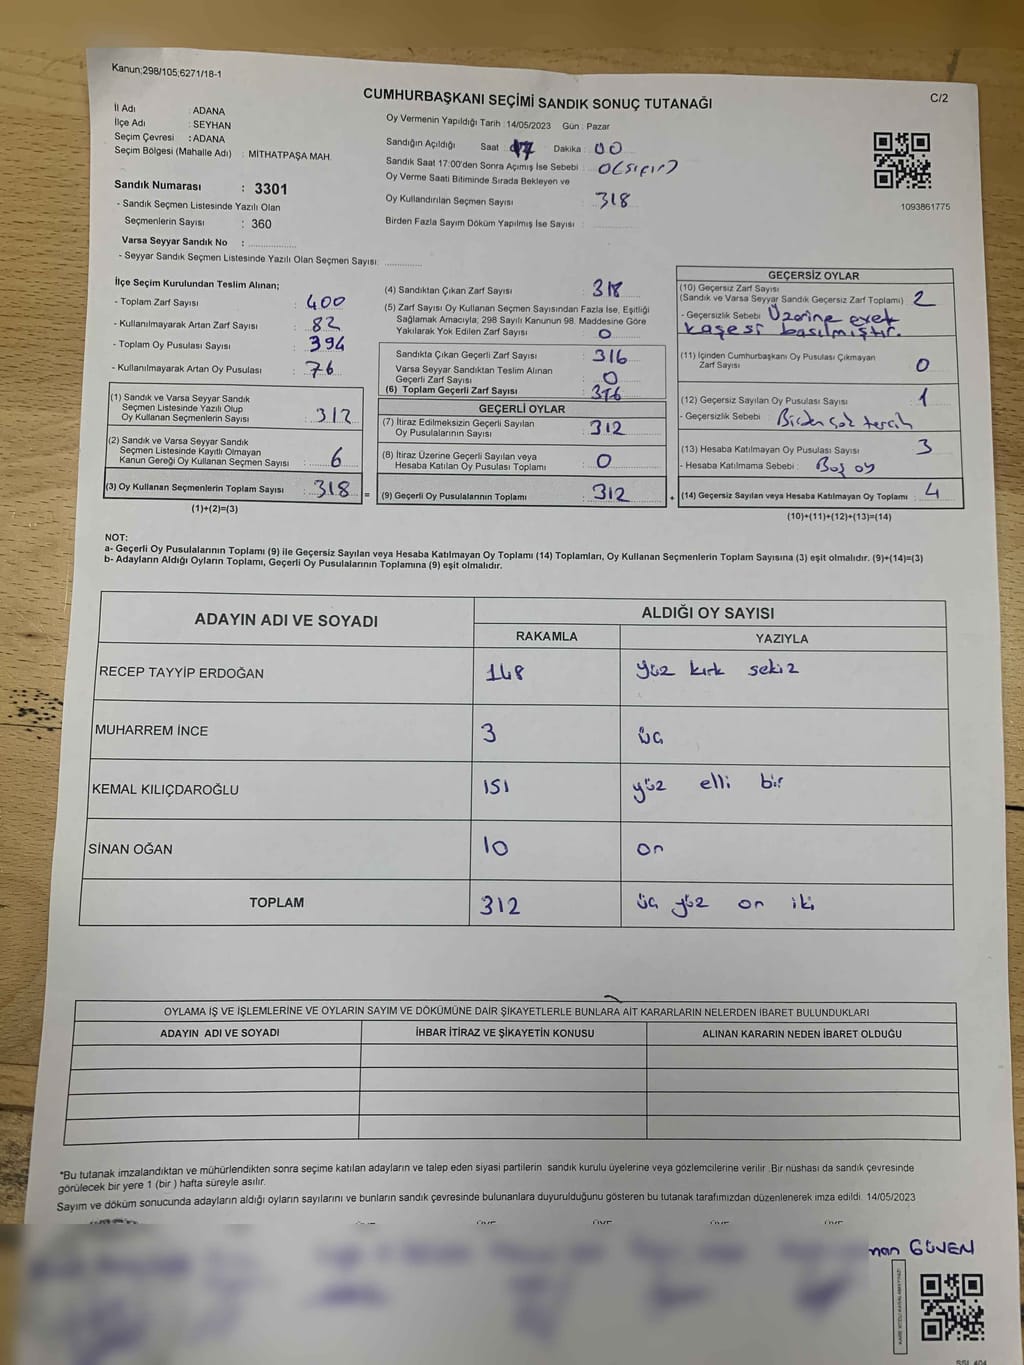 Kanun;298/105;6271/18-1
CUMHURBAŞKANI SEÇİMİ SANDIK SONUÇ TUTANAĞI
C/2
İl Adı : ADANA
İlçe Adı : SEYHAN
Seçim Çevresi : ADANA
Seçim Bölgesi (Mahalle Adı) : MİTHATPAŞA MAH.
Sandık Numarası : 3301
- Sandık Seçmen Listesinde Yazılı Olan
Seçmenlerin Sayısı : 360
Varsa Seyyar Sandık No :
- Seyyar Sandık Seçmen Listesinde Yazılı Olan Seçmen Sayısı:
Oy Vermenin Yapıldığı Tarih : 14/05/2023 Gün : Pazar
Sandığın Açıldığı Saat 17 Dakika : 00
Sandık Saat 17:00'den Sonra Açımış İse Sebebi : 0(sıfır)
Oy Verme Saati Bitiminde Sırada Bekleyen ve
Oy Kullandırılan Seçmen Sayısı : 318
Birden Fazla Sayım Döküm Yapılmış İse Sayısı :
1093861775
İlçe Seçim Kurulundan Teslim Alınan;
- Toplam Zarf Sayısı : 400
- Kullanılmayarak Artan Zarf Sayısı : 82
- Toplam Oy Pusulası Sayısı : 394
- Kullanılmayarak Artan Oy Pusulası : 76
(1) Sandık ve Varsa Seyyar Sandık
Seçmen Listesinde Yazılı Olup
Oy Kullanan Seçmenlerin Sayısı : 312
(2) Sandık ve Varsa Seyyar Sandık
Seçmen Listesinde Kayıtlı Olmayan
Kanun Gereği Oy Kullanan Seçmen Sayısı : 6
(3) Oy Kullanan Seçmenlerin Toplam Sayısı : 318 =
(1)+(2)=(3)
(4) Sandıktan Çıkan Zarf Sayısı : 318
(5) Zarf Sayısı Oy Kullanan Seçmen Sayısından Fazla İse, Eşitliği
Sağlamak Amacıyla; 298 Sayılı Kanunun 98. Maddesine Göre
Yakılarak Yok Edilen Zarf Sayısı : 0
Sandıkta Çıkan Geçerli Zarf Sayısı : 316
Varsa Seyyar Sandıktan Teslim Alınan
Geçerli Zarf Sayısı : 0
(6) Toplam Geçerli Zarf Sayısı : 316
GEÇERLİ OYLAR
(7) İtiraz Edilmeksizin Geçerli Sayılan
Oy Pusulalarının Sayısı : 312
(8) İtiraz Üzerine Geçerli Sayılan veya
Hesaba Katılan Oy Pusulası Toplamı : 0
(9) Geçerli Oy Pusulalarının Toplamı : 312 +
GEÇERSİZ OYLAR
(10) Geçersiz Zarf Sayısı
(Sandık ve Varsa Seyyar Sandık Geçersiz Zarf Toplamı) : 2
- Geçersizlik Sebebi : Üzerine evet
kaşesi basılmıştır.
(11) İçinden Cumhurbaşkanı Oy Pusulası Çıkmayan
Zarf Sayısı : 0
(12) Geçersiz Sayılan Oy Pusulası Sayısı : 1
- Geçersizlik Sebebi : Birden çok tercih
(13) Hesaba Katılmayan Oy Pusulası Sayısı : 3
- Hesaba Katılmama Sebebi : Boş oy
(14) Geçersiz Sayılan veya Hesaba Katılmayan Oy Toplamı : 4
(10)+(11)+(12)+(13)=(14)
NOT:
a- Geçerli Oy Pusulalarının Toplamı (9) ile Geçersiz Sayılan veya Hesaba Katılmayan Oy Toplamı (14) Toplamları, Oy Kullanan Seçmenlerin Toplam Sayısına (3) eşit olmalıdır. (9)+(14)=(3)
b- Adayların Aldığı Oyların Toplamı, Geçerli Oy Pusulalarının Toplamına (9) eşit olmalıdır.
ADAYIN ADI VE SOYADI ALDIĞI OY SAYISI
RAKAMLA YAZIYLA
RECEP TAYYİP ERDOĞAN 148 yüz kırk sekiz
MUHARREM İNCE 3 üç
KEMAL KILIÇDAROĞLU 151 yüz elli bir
SİNAN OĞAN 10 on
TOPLAM 312 üç yüz on iki
OYLAMA İŞ VE İŞLEMLERİNE VE OYLARIN SAYIM VE DÖKÜMÜNE DAİR ŞİKAYETLERLE BUNLARA AİT KARARLARIN NELERDEN İBARET BULUNDUKLARI
ADAYIN ADI VE SOYADI İHBAR İTİRAZ VE ŞİKAYETİN KONUSU ALINAN KARARIN NEDEN İBARET OLDUĞU
*Bu tutanak imzalandıktan ve mühürlendikten sonra seçime katılan adayların ve talep eden siyasi partilerin sandık kurulu üyelerine veya gözlemcilerine verilir. Bir nüshası da sandık çevresinde
görülecek bir yere 1 (bir ) hafta süreyle asılır.
Sayım ve döküm sonucunda adayların aldığı oyların sayılarını ve bunların sandık çevresinde bulunanlara duyurulduğunu gösteren bu tutanak tarafımızdan düzenlenerek imza edildi. 14/05/2023
GÜVEN